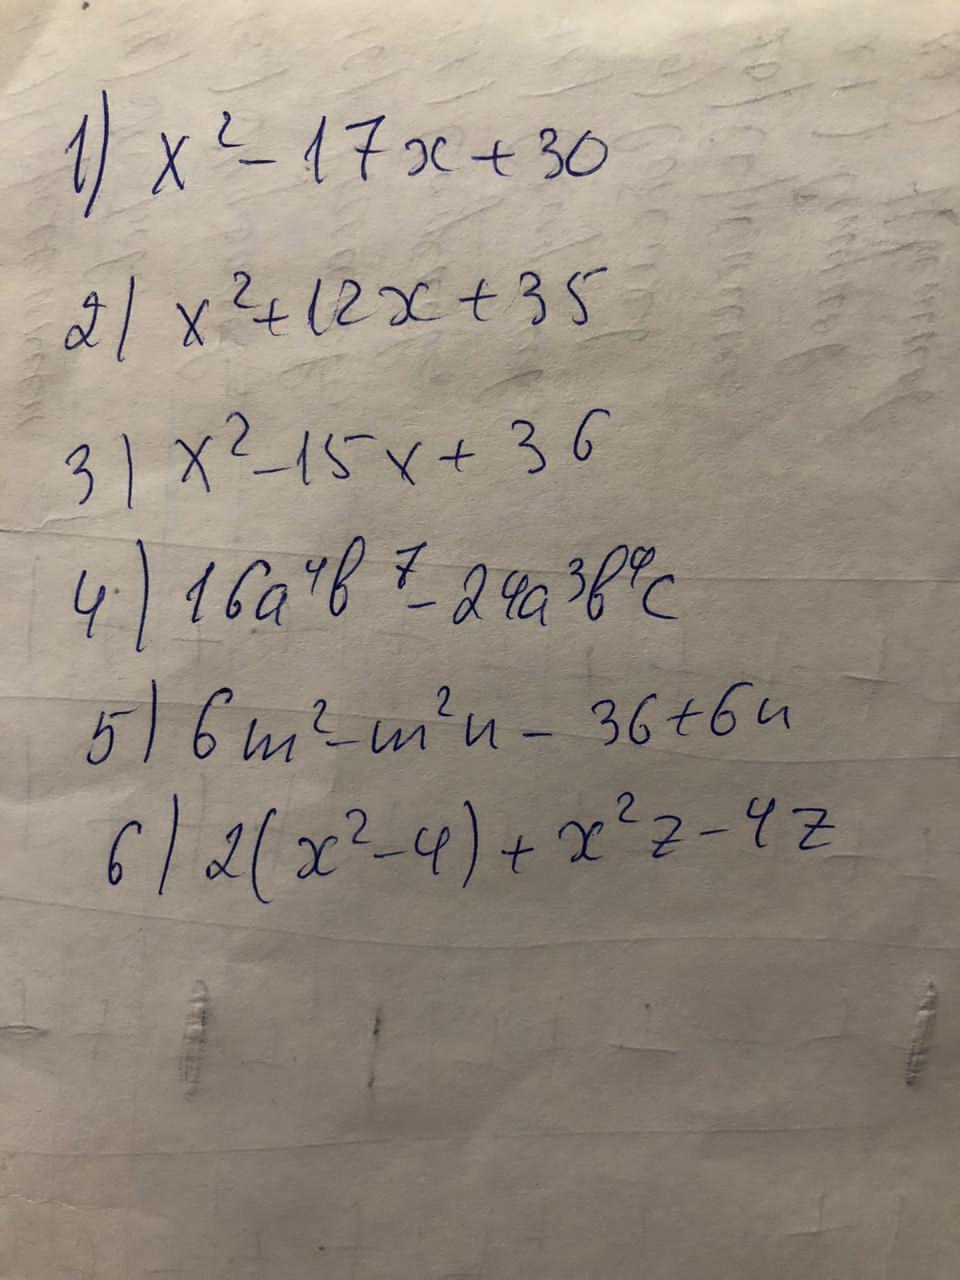 1) x² - 17x + 30
2) x² + 12x + 35
3) x² - 15x + 36
4) 16a⁴b⁷ - 24a³b⁴c
5) 6m² - m²n - 36 + 6n
6) 2(x² - 4) + x²z - 4z